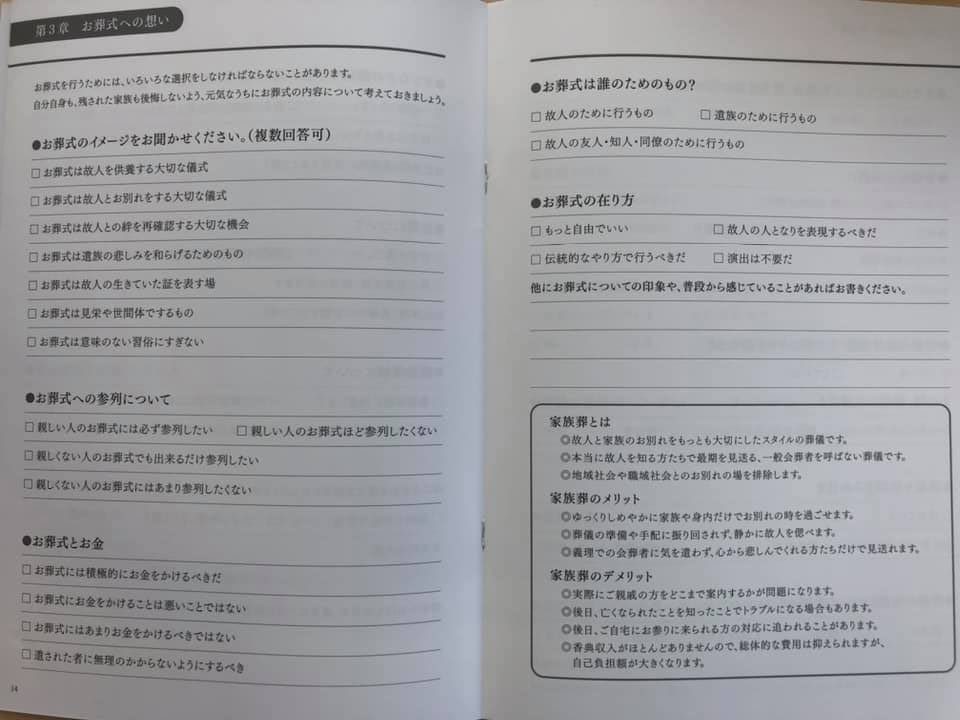 第3章 お葬式への想い
お葬式を行うためには、いろいろな選択をしなければならないことがあります。
自分自身も、残された家族も後悔しないよう、元気なうちにお葬式の内容について考えておきましょう。
●お葬式のイメージをお聞かせください。(複数回答可)
□お葬式は故人を供養する大切な儀式
□お葬式は故人とお別れをする大切な儀式
□お葬式は故人との絆を再確認する大切な機会
□お葬式は遺族の悲しみを和らげるためのもの
□お葬式は故人の生きていた証を表す場
□お葬式は見栄や世間体でするもの
□お葬式は意味のない習俗にすぎない
●お葬式への参列について
□親しい人のお葬式には必ず参列したい □親しい人のお葬式ほど参列したくない
□親しくない人のお葬式でも出来るだけ参列したい
□親しくない人のお葬式にはあまり参列したくない
●お葬式とお金
□お葬式には積極的にお金をかけるべきだ
□お葬式にお金をかけることは悪いことではない
□お葬式にはあまりお金をかけるべきではない
□遺された者に無理のかからないようにするべき
14
●お葬式は誰のためのもの?
□故人のために行うもの □遺族のために行うもの
□故人の友人・知人・同僚のために行うもの
●お葬式の在り方
□もっと自由でいい □故人の人となりを表現するべきだ
□伝統的なやり方で行うべきだ □演出は不要だ
他にお葬式についての印象や、普段から感じていることがあればお書きください。
家族葬とは
◎故人と家族のお別れをもっとも大切にしたスタイルの葬儀です。
◎本当に故人を知る方たちで最期を見送る、一般会葬者を呼ばない葬儀です。
◎地域社会や職域社会とのお別れの場を排除します。
家族葬のメリット
◎ゆっくりしめやかに家族や身内だけでお別れの時を過ごせます。
◎葬儀の準備や手配に振り回されず、静かに故人を偲べます。
◎義理での会葬者に気を遣わず、心から悲しんでくれる方たちだけで見送れます。
家族葬のデメリット
◎実際にご親戚の方をどこまで案内するかが問題になります。
◎後日、亡くなられたことを知ったことでトラブルになる場合もあります。
◎後日、ご自宅にお参りに来られる方の対応に追われることがあります。
◎香典収入がほとんどありませんので、総体的な費用は抑えられますが、
自己負担額が大きくなります。